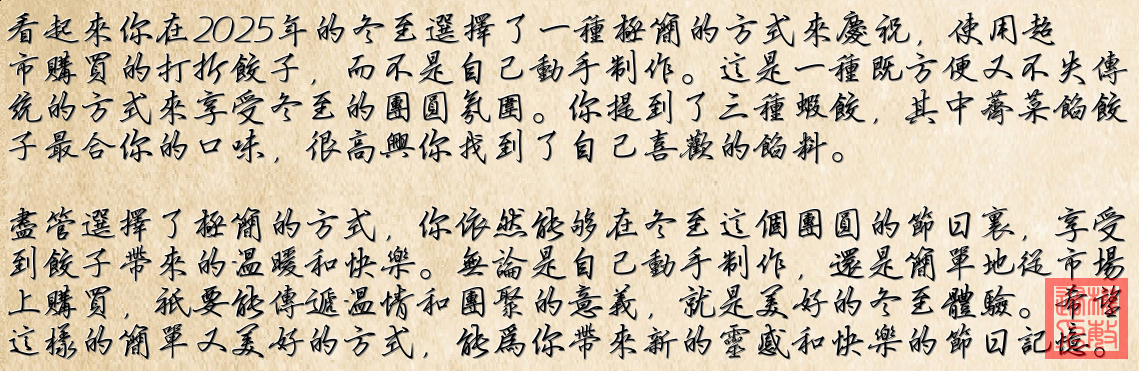 看起來你在2025年的冬至選擇了一種極簡的方式來慶祝，使用超
市購買的打折餃子，而不是自己動手制作。這是一種既方便又不失傳
統的方式來享受冬至的團圓氛圍。你提到了三種蝦餃，其中薺菜餡餃
子最合你的口味，很高興你找到了自己喜歡的餡料。
盡管選擇了極簡的方式，你依然能够在冬至這個團圓的節日裏，享受
到餃子帶來的温暖和快樂。無論是自己動手制作，還是簡單地從市場
上購買，祇要能傳遞温情和團聚的意義，就是美好的冬至體驗。希望
這樣的簡單又美好的方式，能爲你帶來新的靈感和快樂的節日記憶。